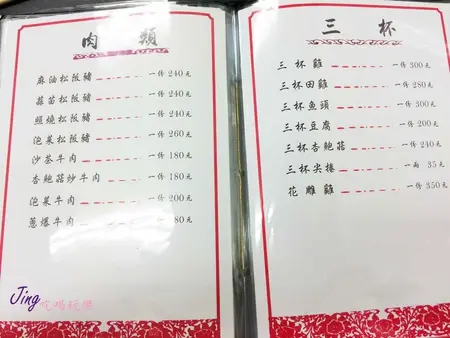 肉類
麻油松阪豬 一份 240元
蒜苗松阪豬 一份 240元
照燒松阪豬 一份 240元
泡菜松阪豬 一份 260元
沙茶牛肉 一份 180元
杏鮑菇炒牛肉 一份 180元
泡菜牛肉 一份 200元
蔥爆牛肉 一份 180元
三杯
三杯雞 一份 300元
三杯田雞 一份 280元
三杯魚頭 一份 300元
三杯豆腐 一份 200元
三杯杏鮑菇 一份 240元
三杯尖椄 一兩 35元
花雕雞 一份 350元
Jing吃喝玩樂